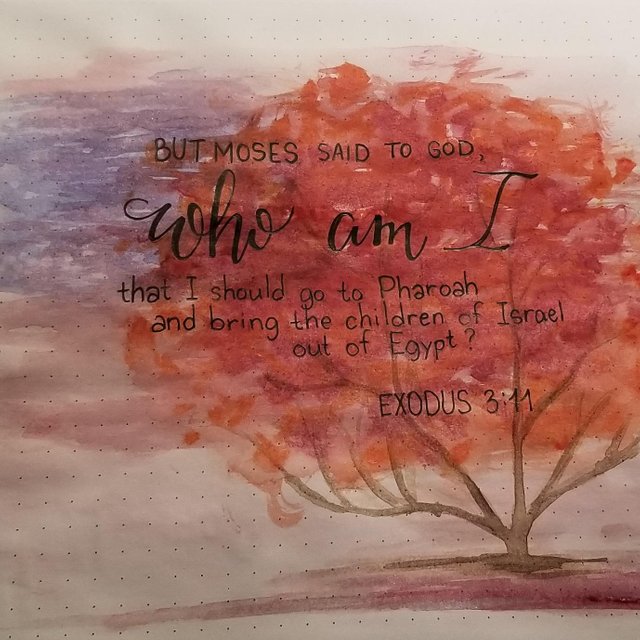 BUT MOSES SAID TO GOD,
who am I
that I should go to Pharoah
and bring the children of Israel
out of Egypt?
EXODUS 3:11